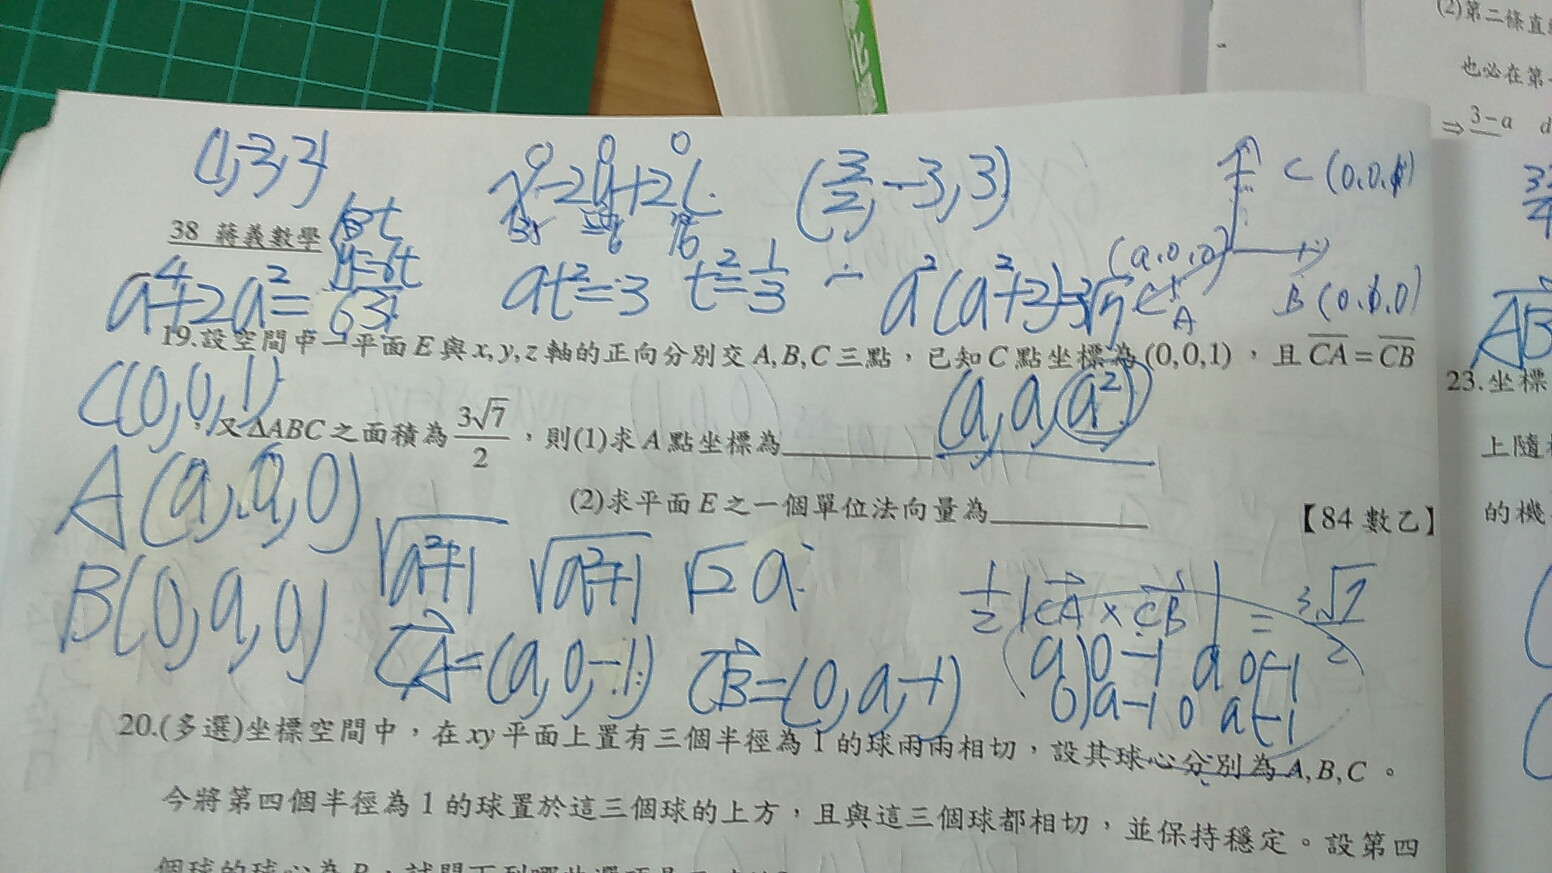 (2)第二條直
也必在第
⇒ 3-a
(1,-3,3)
x-2y+2
(3/2, -3, 3)
C (0,0,1)
38 蔣義數學
(a,0,0)
A
B (0,1,0)
a⁴+2a²=63
at²=3
t²=1/3
a²(a²+2)=3√7
19.設空間中一平面E與x,y,z軸的正向分別交A,B,C三點，已知C點坐標為(0,0,1)，且CA=CB
C(0,0,1)
(a,a,a²)
，又ΔABC之面積為3√7/2，則(1)求A點坐標為
A(a,0,0)
(2)求平面E之一個單位法向量為
【84數乙】
√a²+1 √a²+1 √2 a
B(0,a,0)
1/2|CA×CB|=3√7/2
CA=(a,0,-1) CB=(0,a,-1)
a 0 -1 a 0 -1
0 a -1 0 a -1
20.(多選)坐標空間中，在xy平面上置有三個半徑為1的球兩兩相切，設其球心分別為A,B,C。
今將第四個半徑為1的球置於這三個球的上方，且與這三個球都相切，並保持穩定。設第四
AB
23.坐標
上隨
的機